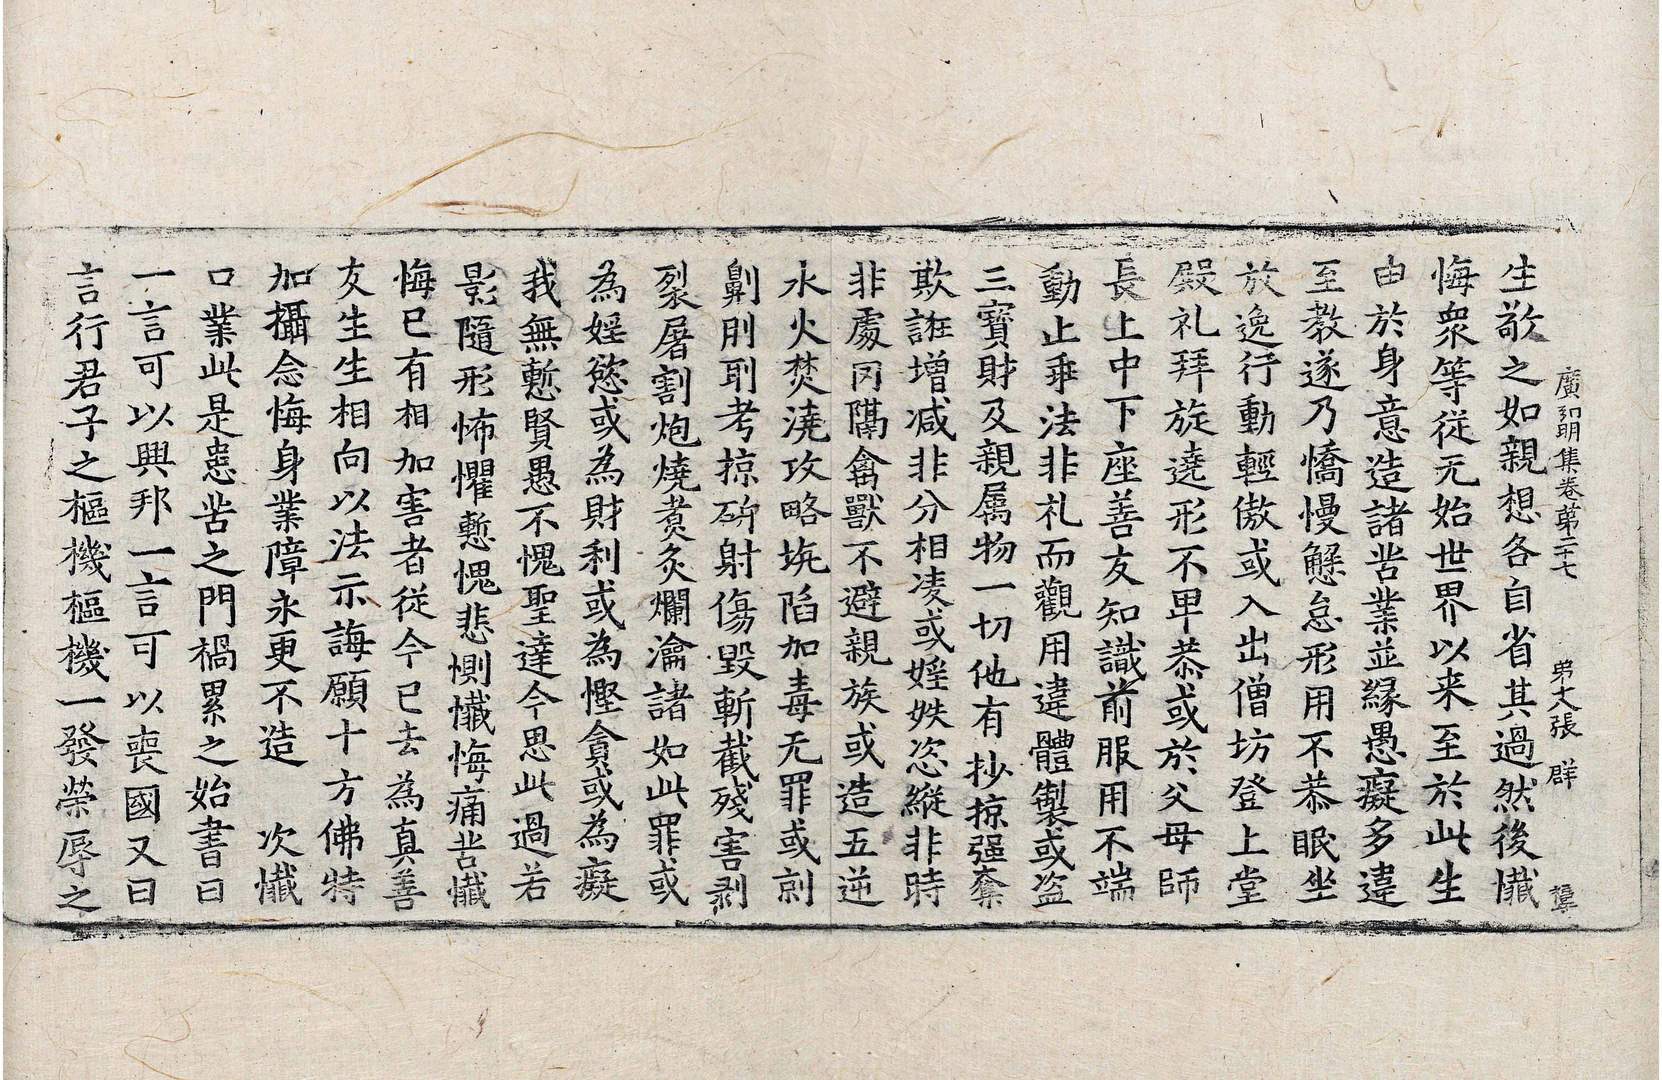 廣弘明集卷第二十七　第大張　群
生敬之如親想各自省其過然後懺
悔衆等從无始世界以来至於此生
由於身意造諸苦業並緣愚癡多違
至教遂乃憍慢懈怠形用不恭眠坐
放逸行動輕傲或入出僧坊登上堂
殿礼拜旋遶形不卑恭或於父母師
長上中下座善友知識前服用不端
動止乖法非礼而觀用違體製或盜
三寶財及親属物一切他有抄掠强奪
欺誑增减非分相凌或婬妷恣縱非時
非處罔隔禽獸不避親族或造五逆
水火焚澆攻略坑陷加毒无罪或剠
劓刖刵考掠斫射傷毀斬截殘害剥
裂屠割炮燒煑灸爛瀹諸如此罪或
為婬慾或為財利或為慳貪或為癡
我無慙賢愚不愧聖達今思此過若
影隨形怖懼慙愧悲惻懺悔痛苦懺
悔已有相加害者從今已去為真善
友生生相向以法示誨願十方佛特
加攝念悔身業障永更不造　次懺
口業此是患苦之門禍累之始書曰
一言可以興邦一言可以喪國又曰
言行君子之樞機樞機一發榮辱之